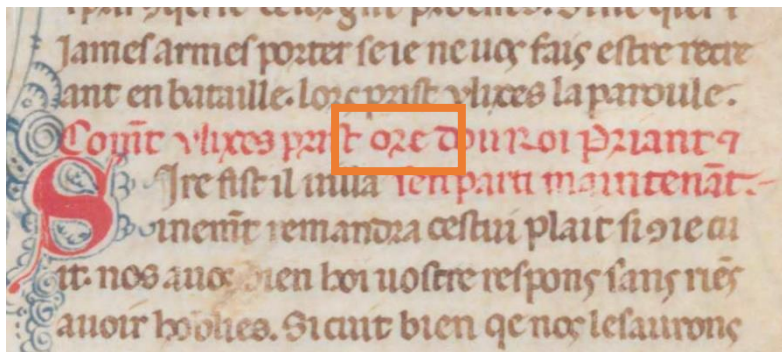 James armes porter se ie ne uos fais estre recre
ant en bataille. lors prist vlixes la paroule.
Com̃t vlixes prist ore dou Roi Priant ⁊
Sire fist il uilla sen parti maintenãt.
inem̃t remandra cestui plait si ꝯ ie cu
it. nos auos bien hoi uostre respons sans riẽs
auoir hoblies. Si cuit bien qe nos le saurons